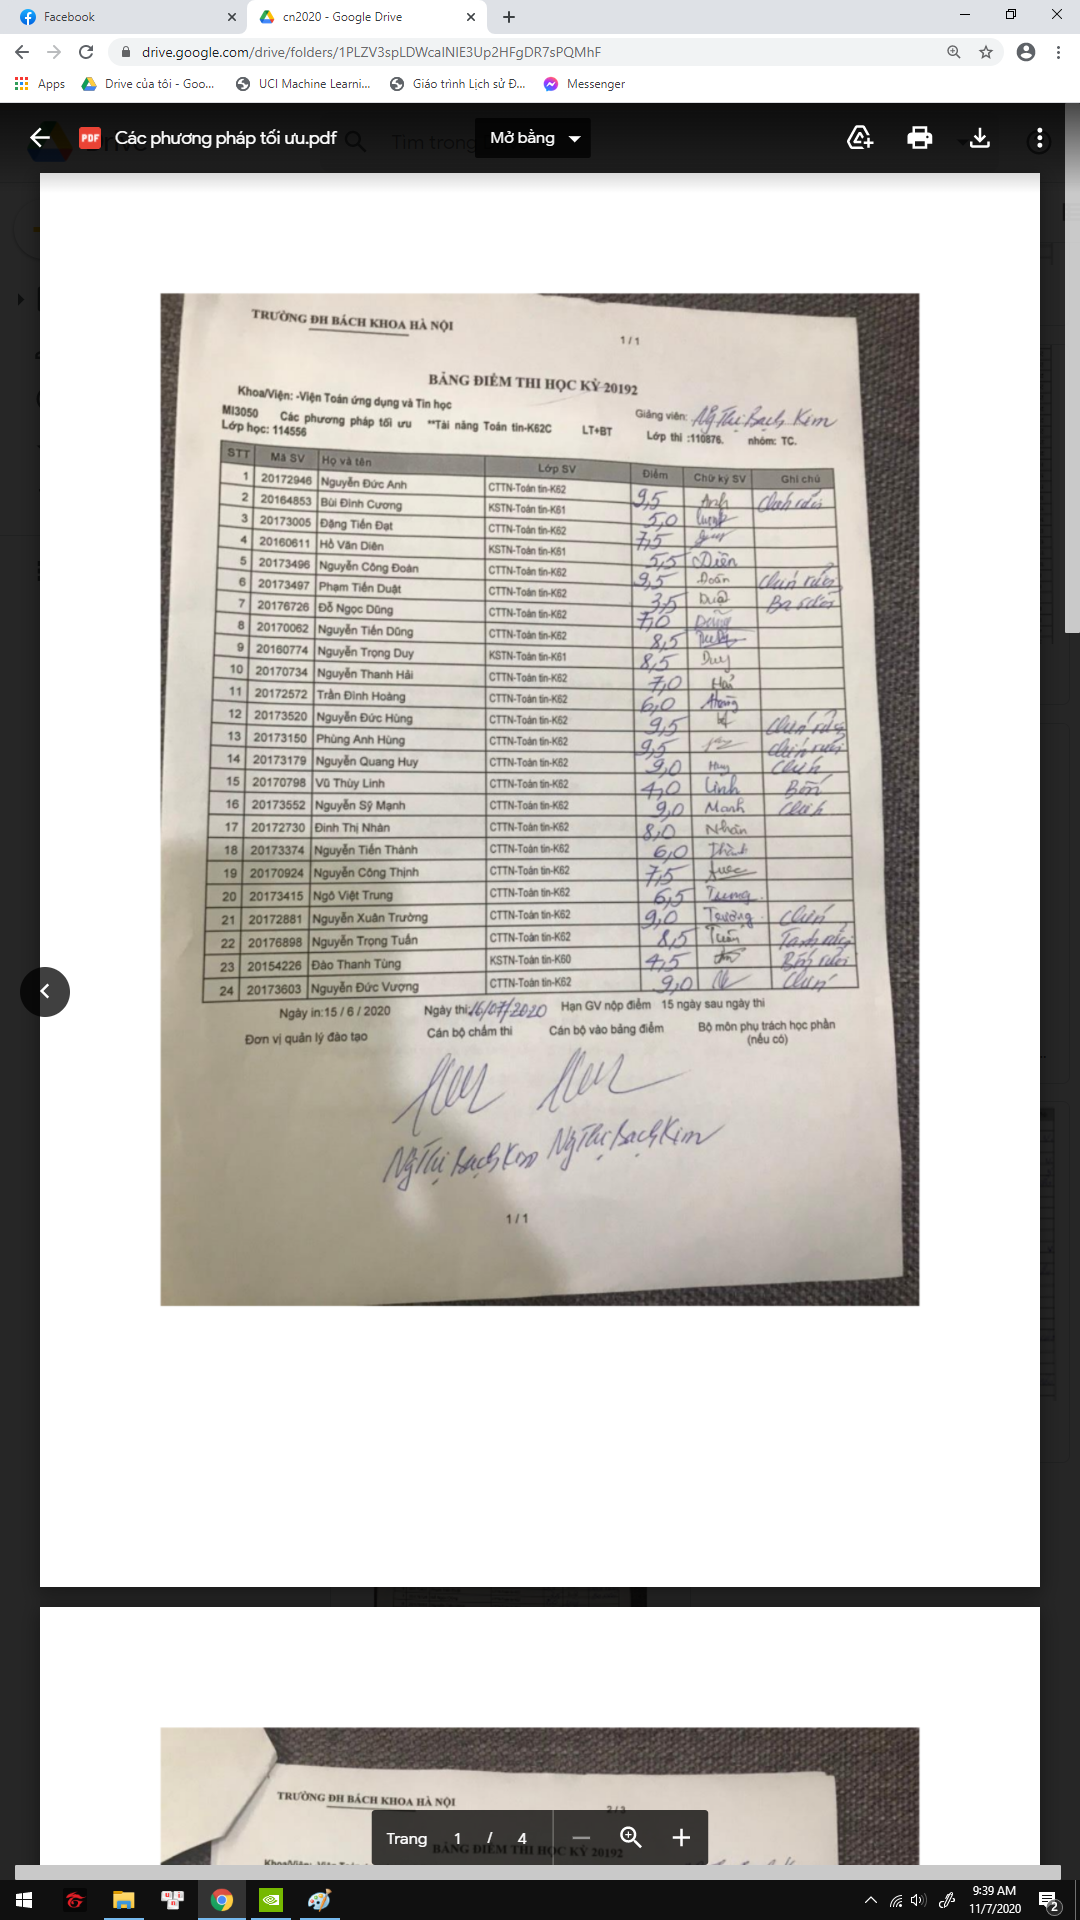 Facebook
cn2020 - Google Drive
drive.google.com/drive/folders/1PLZV3spLDWcaINIE3Up2HFgDR7sPQMhF
Apps Drive của tôi - Goo... UCI Machine Learni... Giáo trình Lịch sử Đ... Messenger
PDF Các phương pháp tối ưu.pdf Tìm trong Mở bằng
TRƯỜNG ĐH BÁCH KHOA HÀ NỘI
1 / 1
BẢNG ĐIỂM THI HỌC KỲ 20192
Khoa/Viện: -Viện Toán ứng dụng và Tin học Giảng viên: Ng Thị Bạch Kim
MI3050 Các phương pháp tối ưu **Tài năng Toán tin-K62C LT+BT Lớp thi :110876. nhóm: TC.
Lớp học: 114556
STT Mã SV Họ và tên Lớp SV Điểm Chữ ký SV Ghi chú
1 20172946 Nguyễn Đức Anh CTTN-Toán tin-K62 9,5 Anh Chín rưỡi
2 20164853 Bùi Đình Cương KSTN-Toán tin-K61 5,0
3 20173005 Đặng Tiến Đạt CTTN-Toán tin-K62 7,5
4 20160611 Hồ Văn Diên KSTN-Toán tin-K61 5,5 Diên
5 20173496 Nguyễn Công Đoàn CTTN-Toán tin-K62 9,5 Đoàn Chín rưỡi
6 20173497 Phạm Tiến Duật CTTN-Toán tin-K62 3,5 Ba rưỡi
7 20176726 Đỗ Ngọc Dũng CTTN-Toán tin-K62 7,0 Dũng
8 20170062 Nguyễn Tiến Dũng CTTN-Toán tin-K62 8,5
9 20160774 Nguyễn Trọng Duy KSTN-Toán tin-K61 8,5 Duy
10 20170734 Nguyễn Thanh Hải CTTN-Toán tin-K62 7,0 Hải
11 20172572 Trần Đình Hoàng CTTN-Toán tin-K62 6,0 Hoàng
12 20173520 Nguyễn Đức Hùng CTTN-Toán tin-K62 9,5 Chín rưỡi
13 20173150 Phùng Anh Hùng CTTN-Toán tin-K62 9,5 Chín rưỡi
14 20173179 Nguyễn Quang Huy CTTN-Toán tin-K62 9,0 Huy Chín
15 20170798 Vũ Thùy Linh CTTN-Toán tin-K62 4,0 Linh Bốn
16 20173552 Nguyễn Sỹ Mạnh CTTN-Toán tin-K62 9,0 Mạnh Chín
17 20172730 Đinh Thị Nhàn CTTN-Toán tin-K62 8,0 Nhàn
18 20173374 Nguyễn Tiến Thành CTTN-Toán tin-K62 6,0
19 20170924 Nguyễn Công Thịnh CTTN-Toán tin-K62 7,5
20 20173415 Ngô Việt Trung CTTN-Toán tin-K62 6,5 Trung
21 20172881 Nguyễn Xuân Trường CTTN-Toán tin-K62 9,0 Trường Chín
22 20176898 Nguyễn Trọng Tuấn CTTN-Toán tin-K62 8,5 Tuấn
23 20154226 Đào Thanh Tùng KSTN-Toán tin-K60 4,5 Bốn rưỡi
24 20173603 Nguyễn Đức Vượng CTTN-Toán tin-K62 9,0 Chín
Ngày in:15 / 6 / 2020 Ngày thi:16/07/2020 Hạn GV nộp điểm 15 ngày sau ngày thi
Đơn vị quản lý đào tạo Cán bộ chấm thi Cán bộ vào bảng điểm Bộ môn phụ trách học phần
(nếu có)
Ng Thị Bạch Kim Ng Thị Bạch Kim
1 / 1
TRƯỜNG ĐH BÁCH KHOA HÀ NỘI
2 / 3
BẢNG ĐIỂM THI HỌC KỲ 20192
Trang 1 / 4
9:39 AM
11/7/2020
2